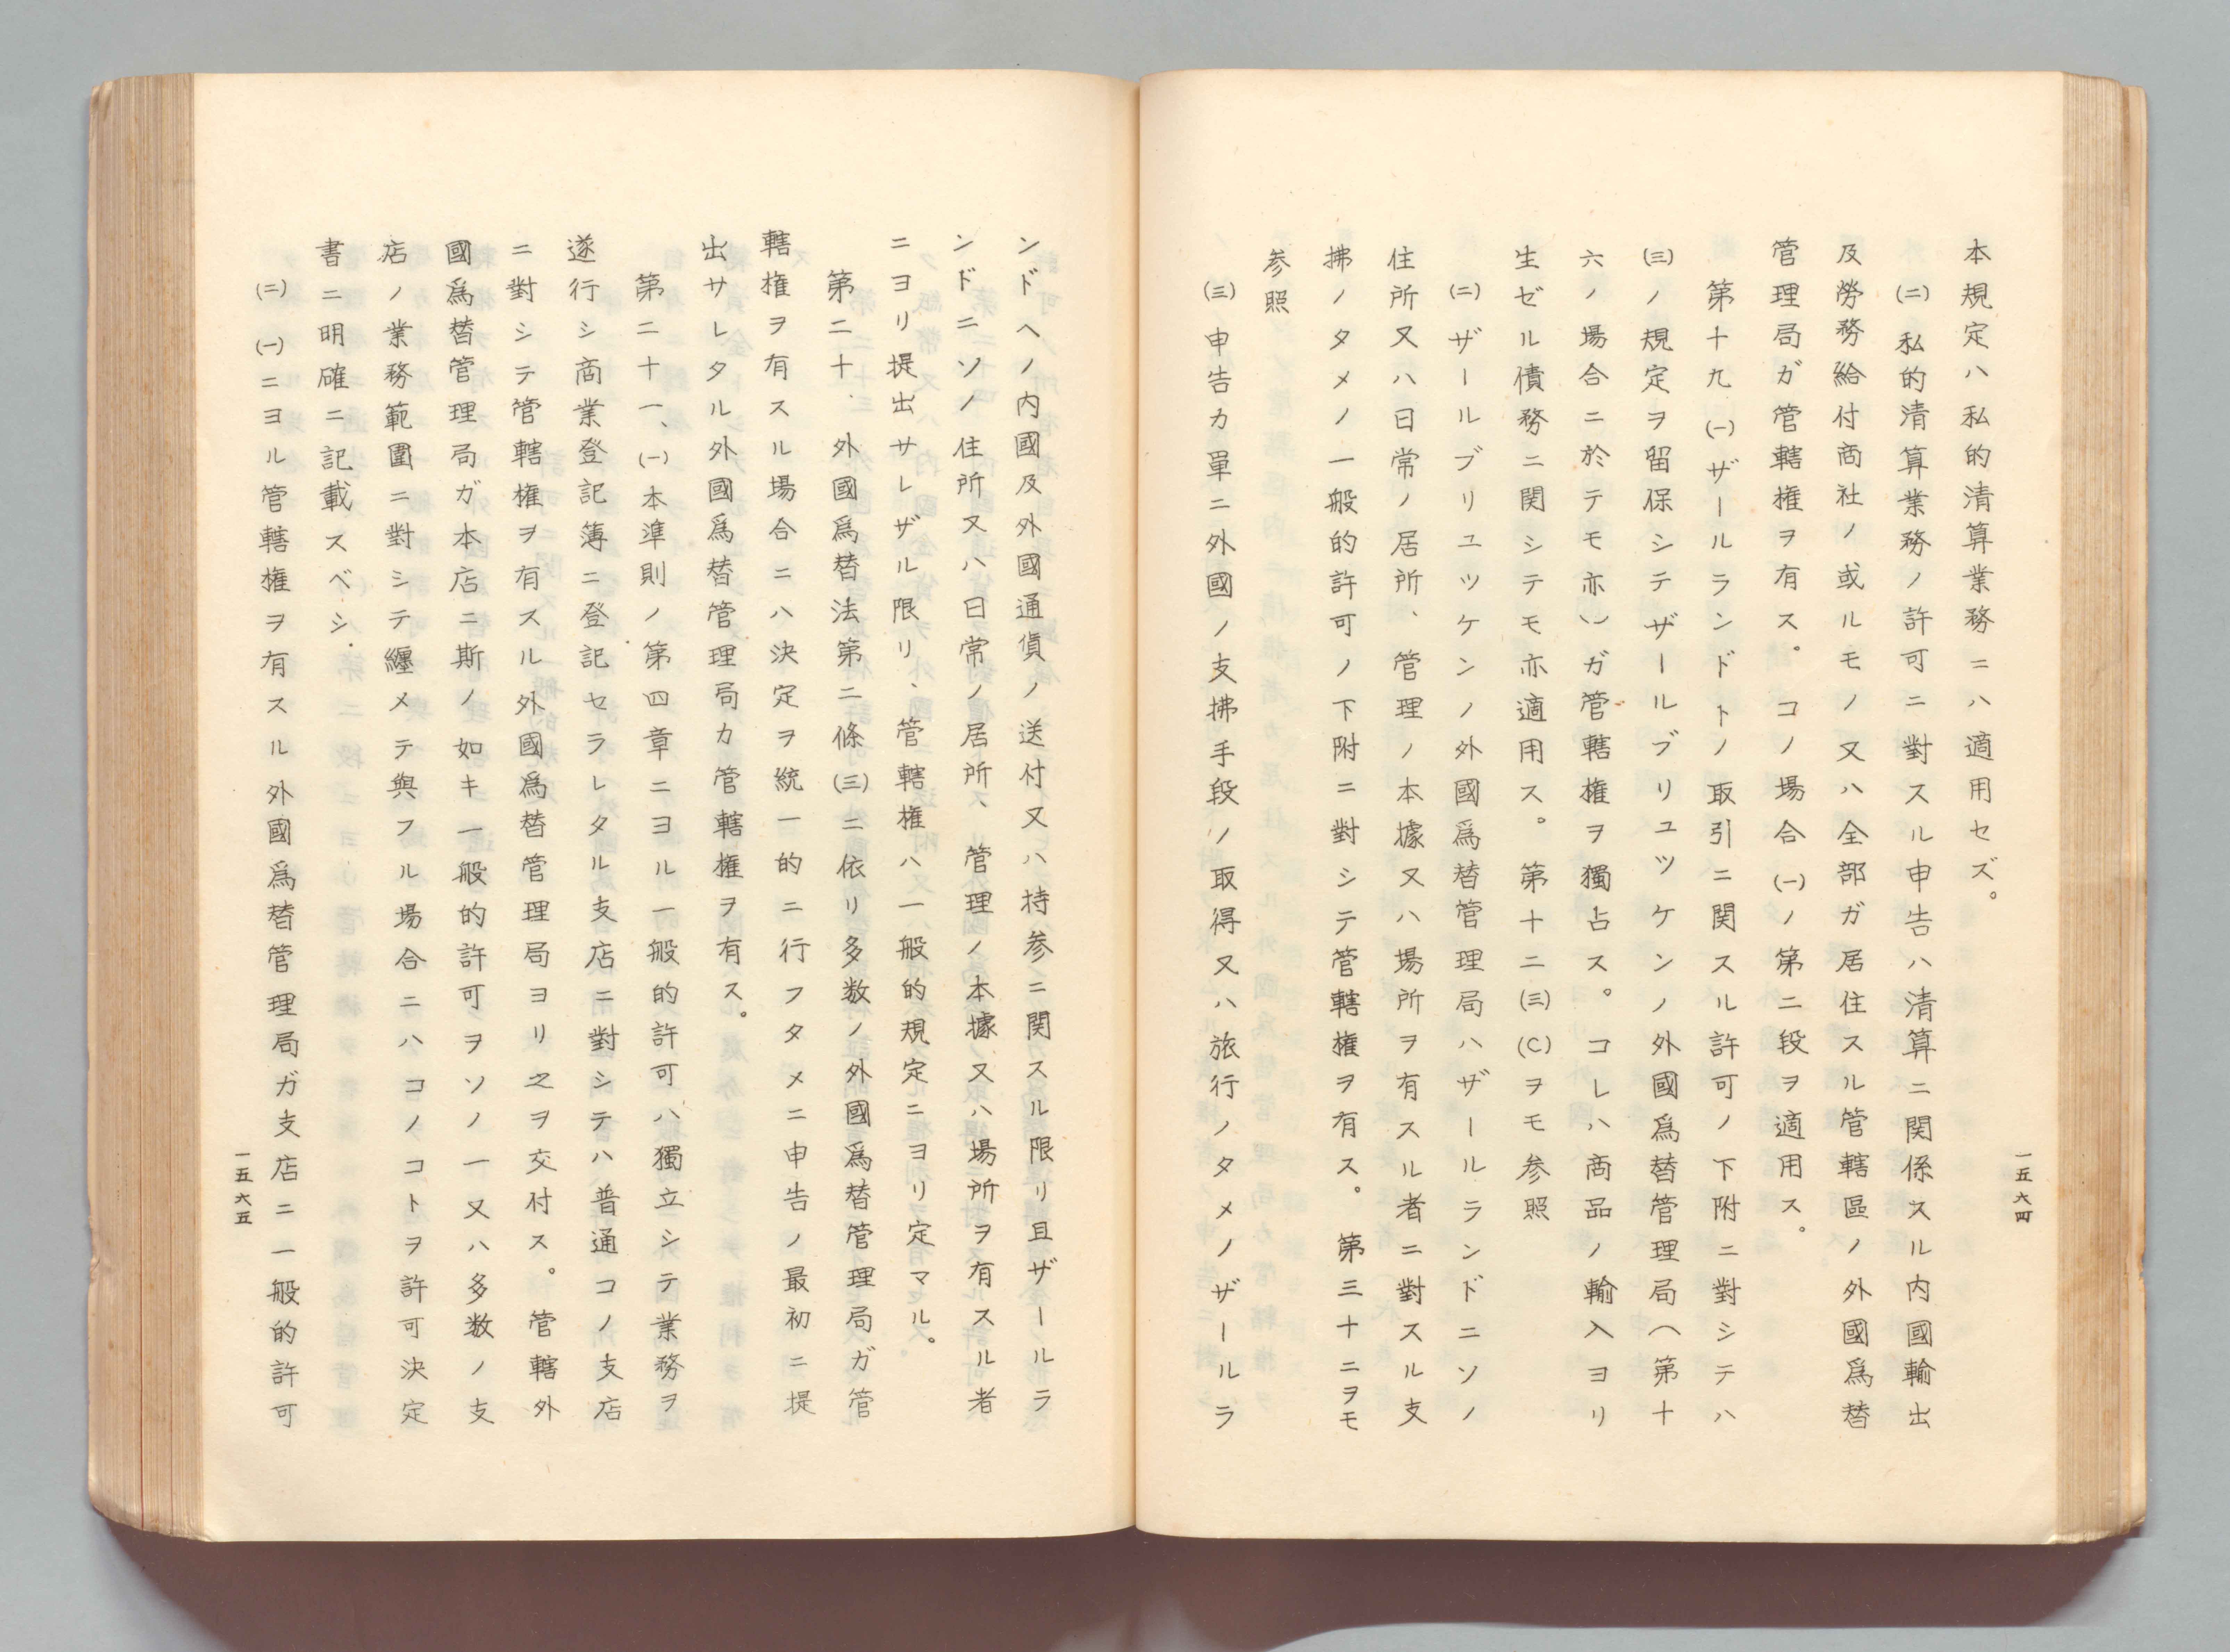 一五六四
本規定ハ私的清算業務ニハ適用セズ。
(二)私的清算業務ノ許可ニ對スル申告ハ清算ニ関係スル内國輸出
及勞務給付商社ノ或ルモノ又ハ全部ガ居住スル管轄區ノ外國爲替
管理局ガ管轄権ヲ有ス。コノ場合(一)ノ第二段ヲ適用ス。
第十九(一)ザールランドトノ取引ニ関スル許可ノ下附ニ對シテハ
(三)ノ規定ヲ留保シテザールブリユツケンノ外國爲替管理局(第十
六ノ場合ニ於テモ亦)ガ管轄権ヲ獨占ス。コレハ商品ノ輸入ヨリ
生ゼル債務ニ関シテモ亦適用ス。第十二(三)(C)ヲモ参照
(二)ザールブリユツケンノ外國爲替管理局ハザールランドニソノ
住所又ハ日常ノ居所、管理ノ本據又ハ場所ヲ有スル者ニ對スル支
拂ノタメノ一般的許可ノ下附ニ對シテ管轄権ヲ有ス。第三十ニヲモ
参照
(三)申告カ單ニ外國ノ支拂手段ノ取得又ハ旅行ノタメノザールラ
ンドヘノ内國及外國通貨ノ送付又ハ持参ニ関スル限リ且ザールラ
ンドニソノ住所又ハ日常ノ居所、管理ノ本據又ハ場所ヲ有スル者
ニヨリ提出サレザル限リ、管轄権ハ一般的規定ニヨリ定マル。
第二十、外國爲替法第二條(三)ニ依リ多数ノ外國爲替管理局ガ管
轄権ヲ有スル場合ニハ決定ヲ統一的ニ行フタメニ申告ノ最初ニ提
出サレタル外國爲替管理局カ管轄権ヲ有ス。
第二十一、(一)本準則ノ第四章ニヨル一般的許可ハ獨立シテ業務ヲ
遂行シ商業登記簿ニ登記セラレタル支店ニ對シテハ普通コノ支店
ニ對シテ管轄権ヲ有スル外國爲替管理局ヨリ之ヲ交付ス。管轄外
國爲替管理局ガ本店ニ斯ノ如キ一般的許可ヲソノ一又ハ多数ノ支
店ノ業務範圍ニ對シテ纒メテ與フル場合ニハコノコトヲ許可決定
書ニ明確ニ記載スベシ.
(二)(一)ニヨル管轄権ヲ有スル外國爲替管理局ガ支店ニ一般的許可
一五六五